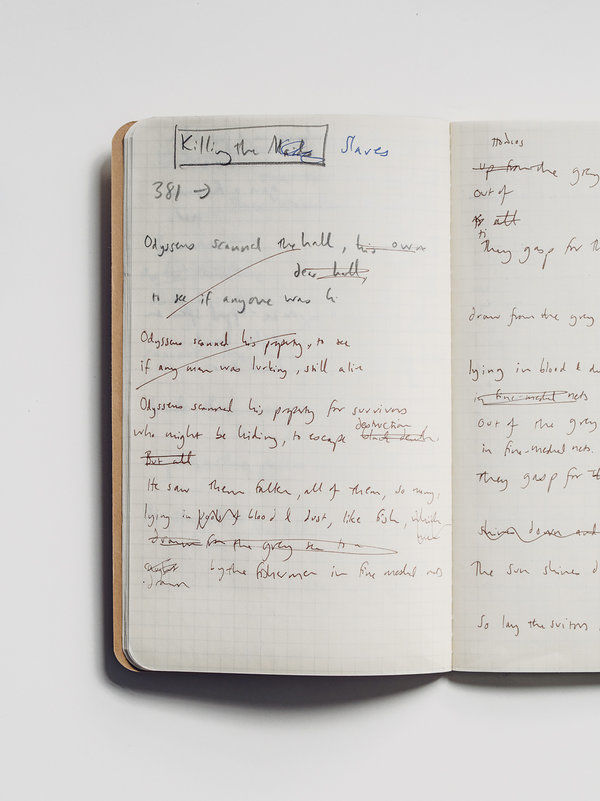 Killing the Maids Slaves
381 →
Odysseus scanned the hall, his own
dear hall,
to see if anyone was hi
Odysseus scanned his property, to see
if any man was lurking, still alive
Odysseus scanned his property for survivors
destruction
who might be hiding, to escape black death.
But all
He saw them fallen, all of them, so many,
lying in blood & dust, like fish,
drawn from the grey sea to a
caught by the fishermen in fine-meshed nets
drawn
up from the grey
out of
all
They gasp for th
draw from the grey
lying in blood & du
in fine-meshed nets
out of the grey
in fine-meshed nets.
They gasp for th
shines down and
The sun shines d
So lay the suitors